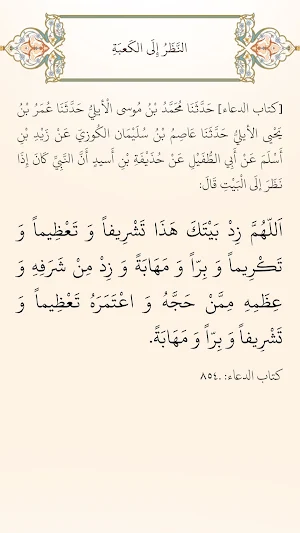 النَّظَرُ إِلَى الكَعبَةِ
[كتاب الدعاء] حَدَّثَنَا مُحَمَّدُ بْنُ مُوسى الْأَيلِيُّ حَدَّثَنَا عُمَرُ بْنُ
يَحْيى الأيلِيُّ حَدَّثَنَا عَاصِمُ بْنُ سُلَيْمَان الكُوزِيّ عَنْ زَيْدِ بْنِ
أَسْلَمَ عَنْ أَبِي الطُّفَيْلِ عَنْ حُذَيْفَةَ بْنِ أَسيدٍ أَنَّ النَّبِيَّ كَانَ إِذَا
نَظَرَ إِلَى الْبَيْتِ قَالَ:
اَللّٰهُمَّ زِدْ بَيْتَكَ هَذَا تَشْرِيفاً وَ تَعْظِيماً وَ
تَكْرِيماً وَ بِرّاً وَ مَهَابَةً وَ زِدْ مِنْ شَرَفِهِ وَ
عِظَمِهِ مِمَّنْ حَجَّهُ وَ اعْتَمَرَهُ تَعْظِيماً وَ
تَشْرِيفاً وَ بِرّاً وَ مَهَابَةً.
كتاب الدعاء: ٨٥٤.